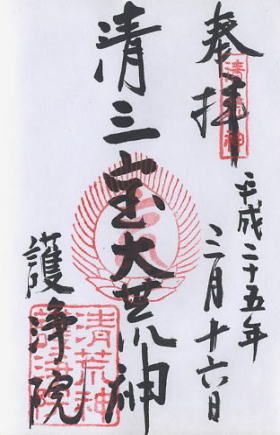 奉拝
清荒神
平成二十五年
三月十六日
清三宝大荒神
護浄院
清荒神
護浄院